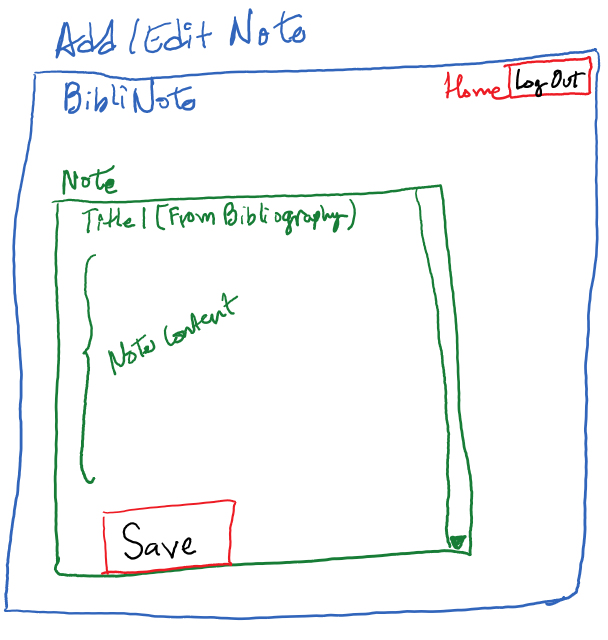 Add / Edit Note
BibliNote
Home Log Out
Note
Title 1 (From Bibliography)
Note Content
Save